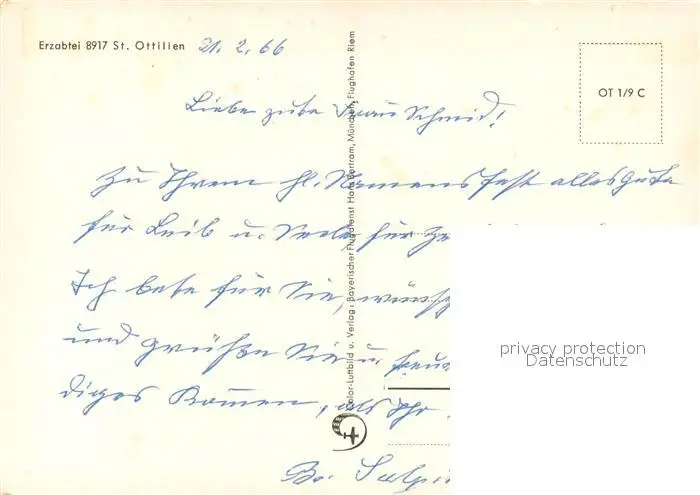 Erzabtei 8917 St. Ottilien 21. 2. 66
OT 1/9 C
Liebe gute Frau Schmid!
Zu Ihrem hl. Namensfest alles Gute
für Leib u. Seele für
Ich bete für Sie,
und grüße Sie u.
Kommen, als Ihr
Br.
Color-Luftbild u. Verlag: Bayerischer Flugdienst Hans Bertram, München, Flughafen Riem
privacy protection
Datenschutz